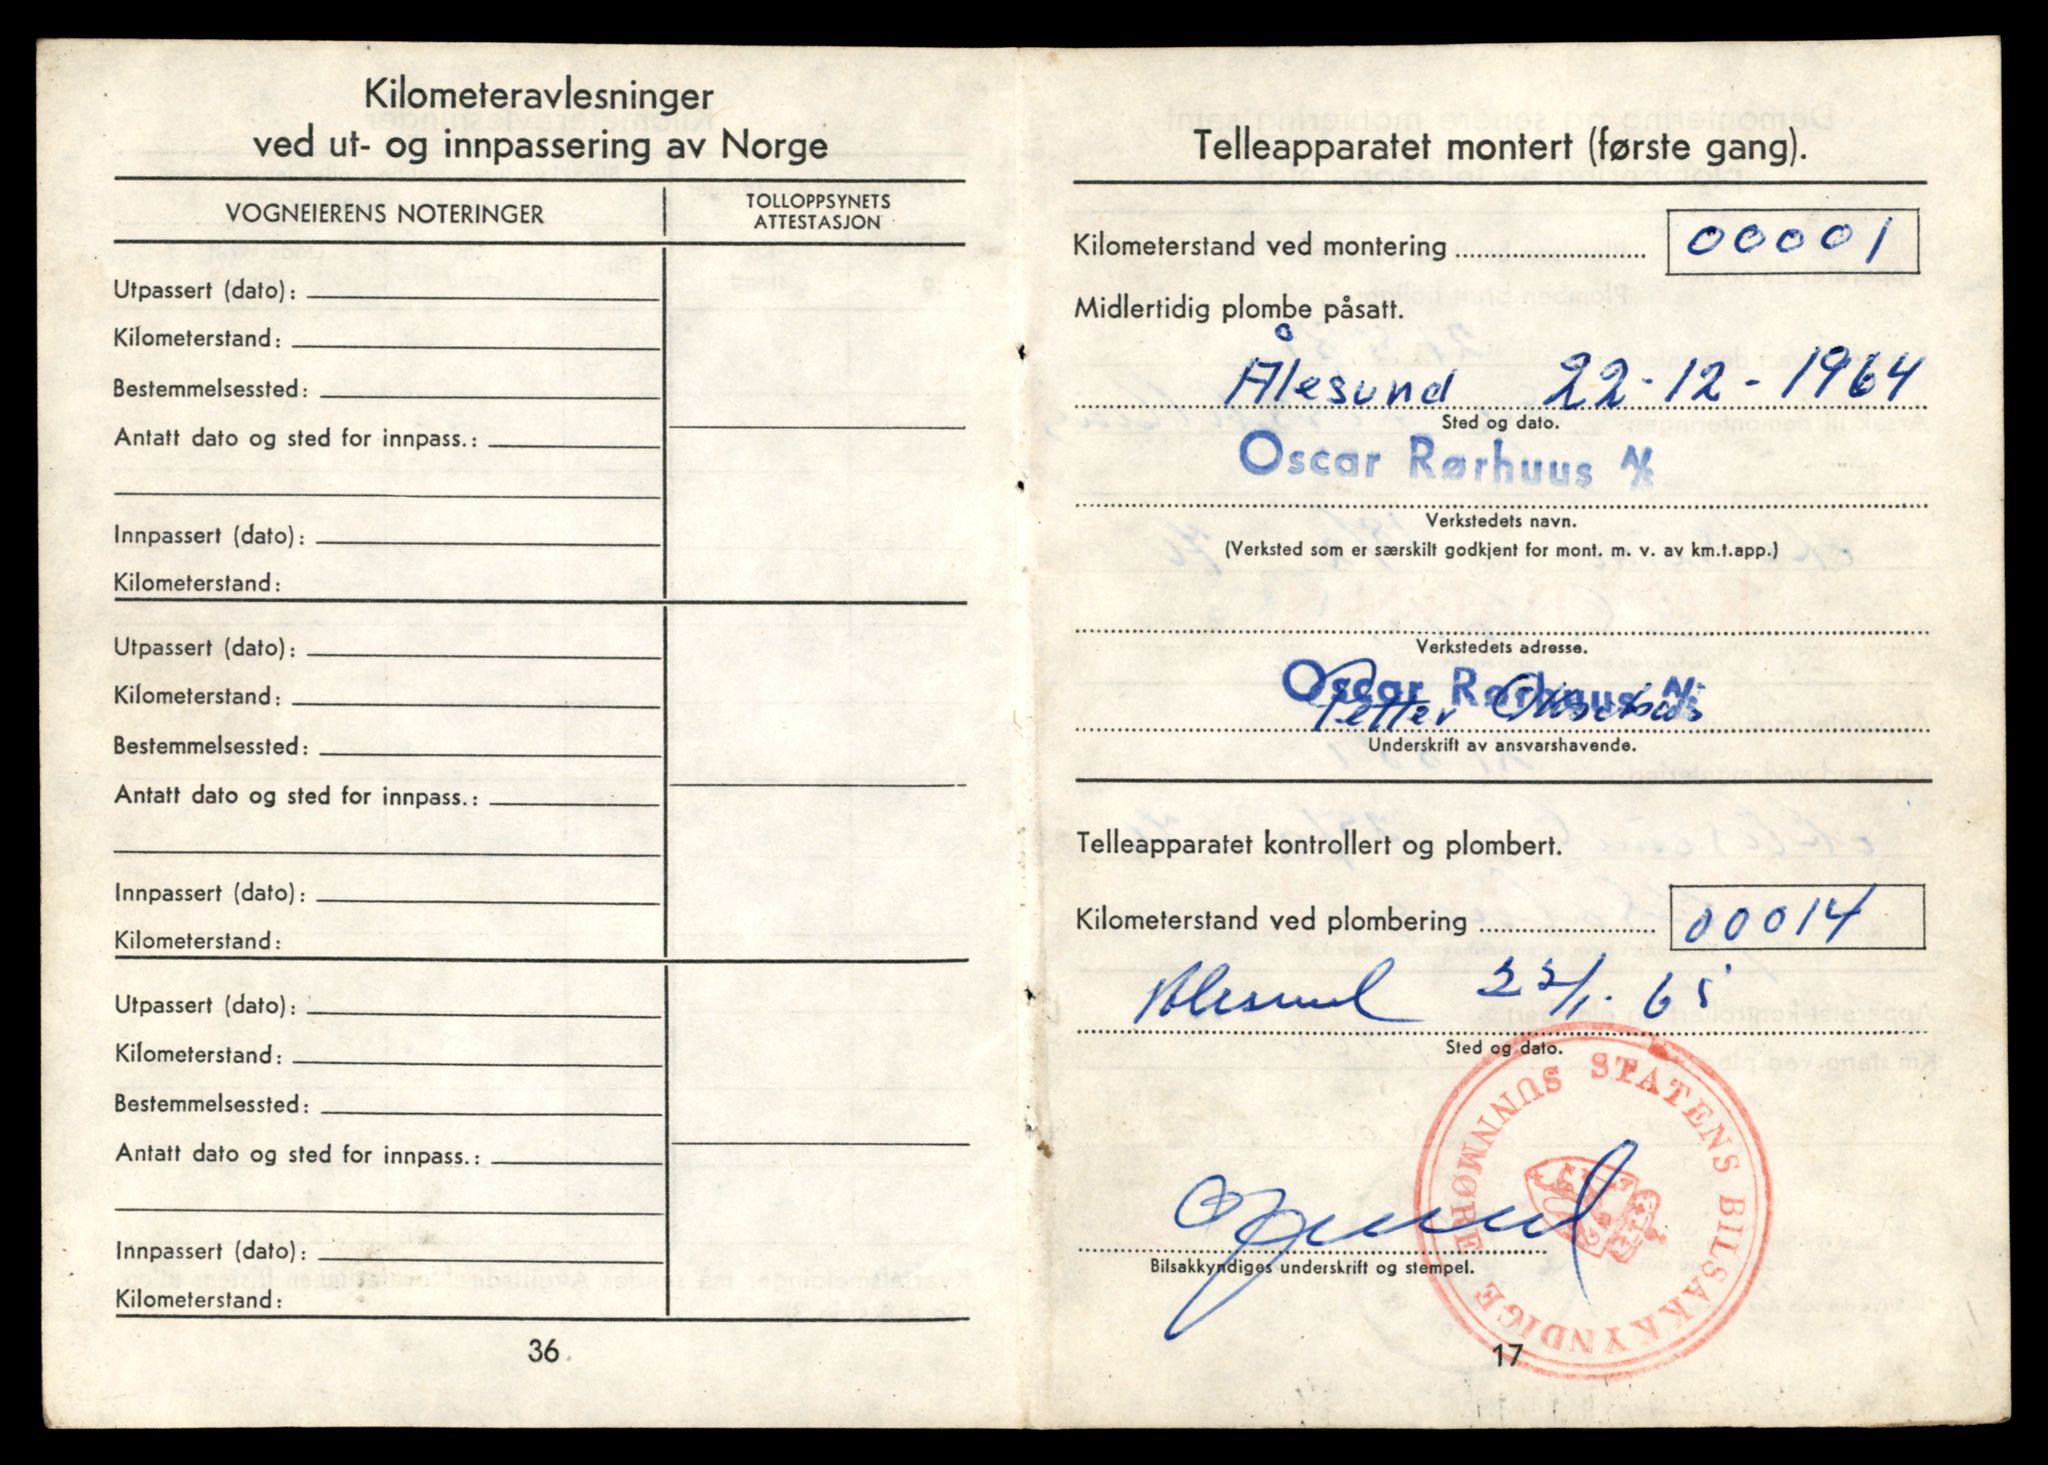 Kilometeravlesninger
ved ut- og innpassering av Norge
VOGNEIERENS NOTERINGER
TOLLOPPSYNETS
ATTESTASJON
Utpassert (dato):
Kilometerstand:
Bestemmelsessted:
Antatt dato og sted for innpass.:
Innpassert (dato):
Kilometerstand:
Utpassert (dato):
Kilometerstand:
Bestemmelsessted:
Antatt dato og sted for innpass.:
Innpassert (dato):
Kilometerstand:
Utpassert (dato):
Kilometerstand:
Bestemmelsessted:
Antatt dato og sted for innpass.:
Innpassert (dato):
Kilometerstand:
36
Telleapparatet montert (første gang).
Kilometerstand ved montering 00001
Midlertidig plombe påsatt.
Ålesund 22-12-1964
Sted og dato.
Oscar Rørhuus A/S
Verkstedets navn.
(Verksted som er særskilt godkjent for mont. m. v. av km.t.app.)
Verkstedets adresse.
Oscar Rørhuus A/S
Petter
Underskrift av ansvarshavende.
Telleapparatet kontrollert og plombert.
Kilometerstand ved plombering 00014
Ålesund 22/1-65
Sted og dato.
STATENS BILSAKKYNDIGE SUNNMØRE
Bilsakkyndiges underskrift og stempel.
17